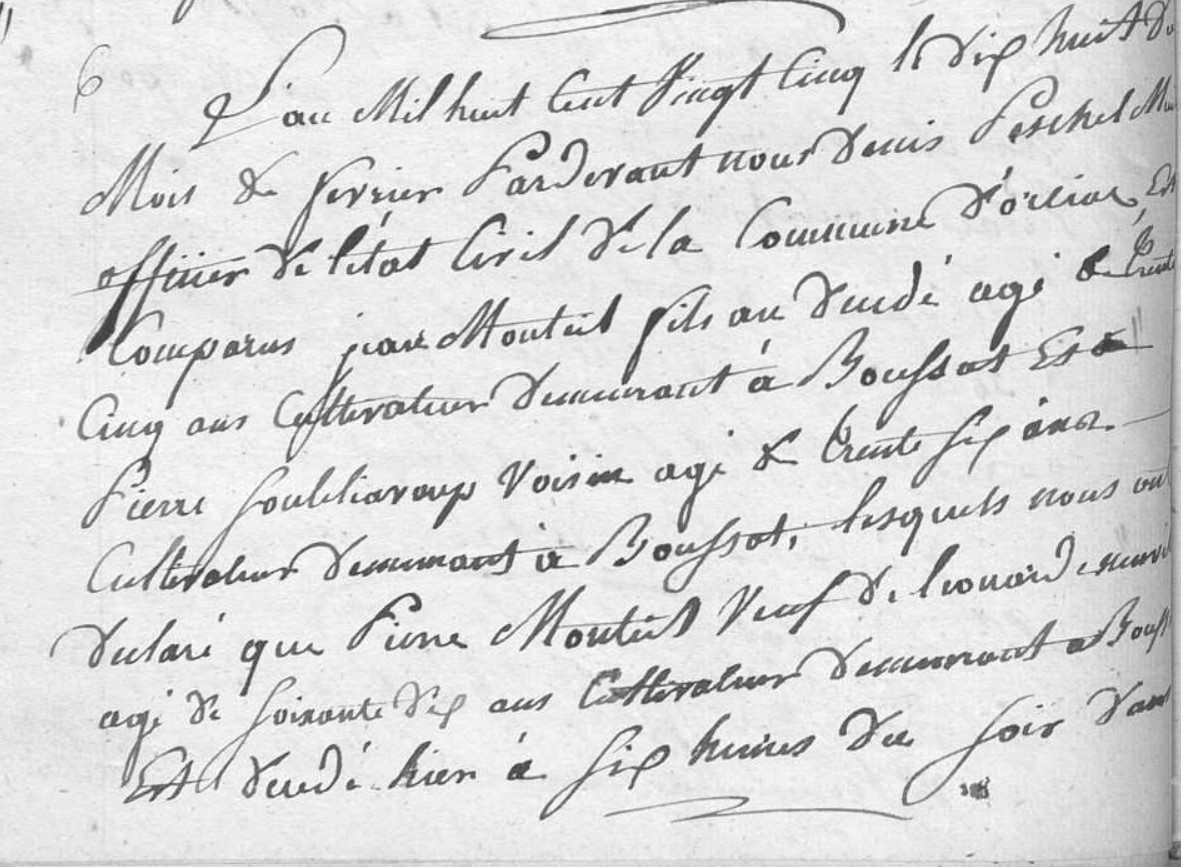 6
L'an Mil huit Cent Vingt Cinq le dix huit du
Mois de fevrier Pardevant nous Denis Peschel
officier de l'état Civil de la Commune d'orliac, Est
Comparus jean Monteil fils au decedé agé de trente
Cinq ans Cultivateur demeurant à Boussat Et
Pierre voisin agé de trente six ans
Cultivateur demeurant à Boussat, lesquels nous ont
declaré que Pierre Monteil Veuf de leonarde
agé de soixante dix ans Cultivateur demeurant a Bouss
Est decedé hier à six heures du soir dans